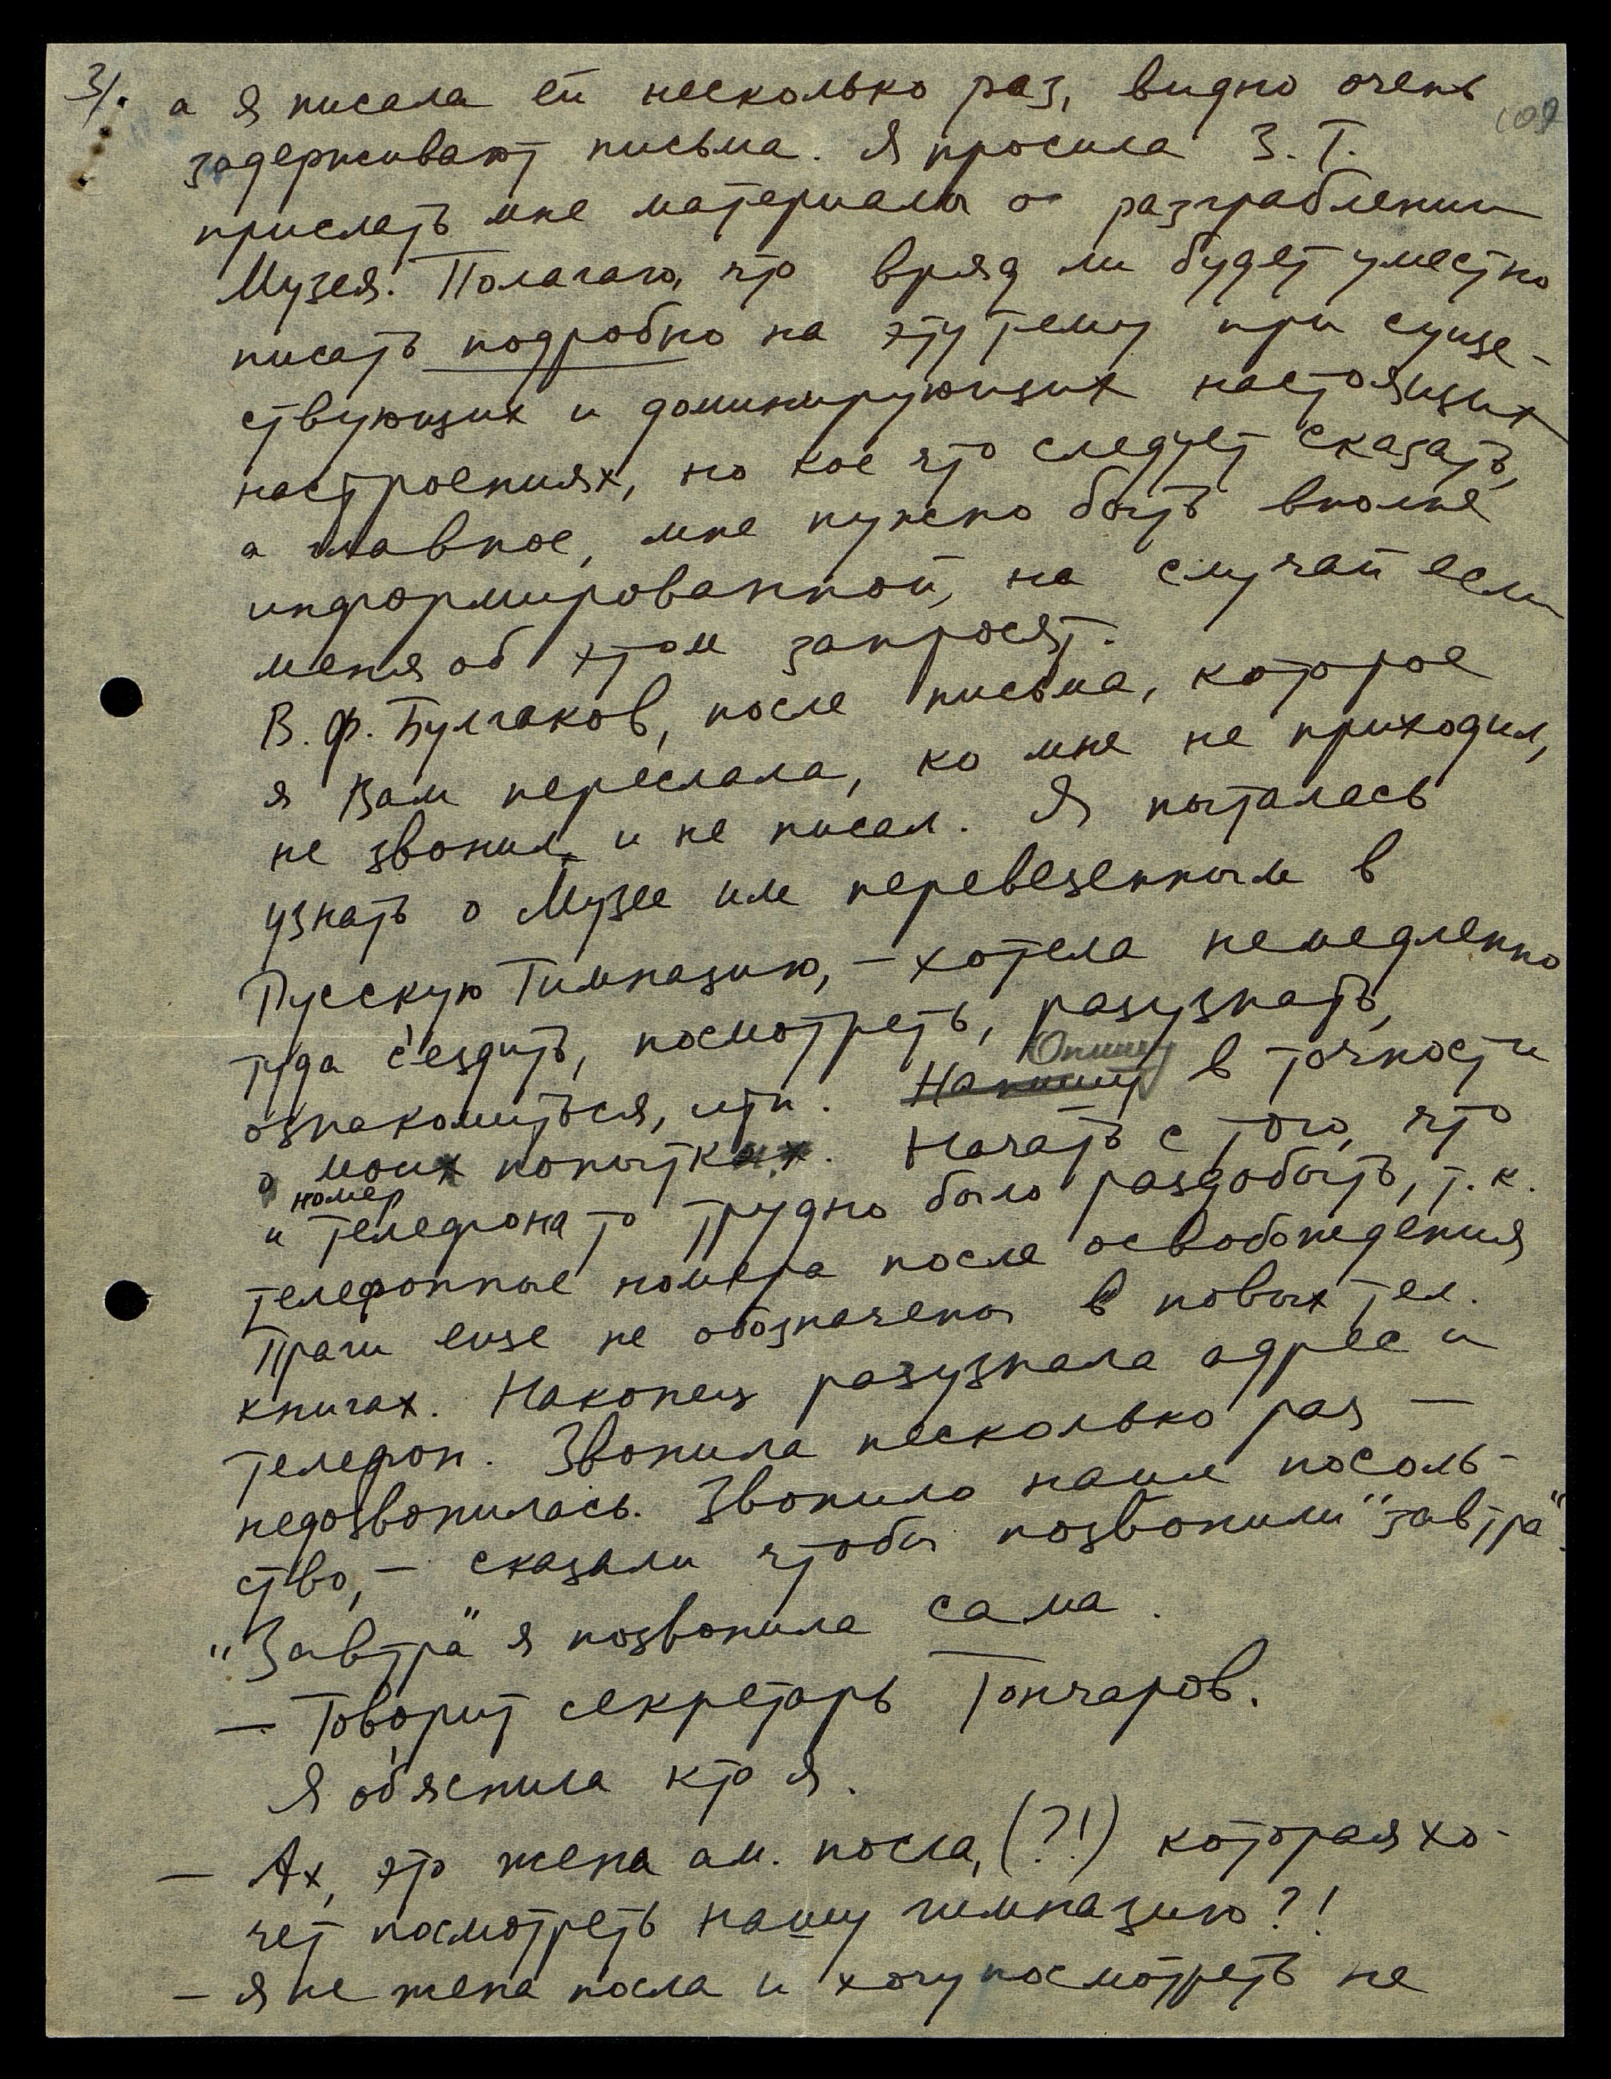 3/.
109
а я писала ей несколько раз, видно очень
задерживают письма. Я просила З.Г.
прислать мне материалы о разграблении
Музея. Полагаю, что вряд ли будет уместно
писать подробно на эту тему при суще-
ствующих и доминирующих настоящих
настроениях, но кое что следует сказать,
а главное, мне нужно быть вполне
информированной, на случай если
меня об этом запросят.
В.Ф. Булгаков, после письма, которое
я Вам переслала, ко мне не приходил,
не звонил и не писал. Я пыталась
узнать о Музее им перевезенным в
Русскую Гимназию, – хотела немедленно
туда с'ездить, посмотреть, разузнать,
Опишу
ознакомиться, итп. Напишу в точности
о моих попытках. Начать с того, что
номер
и телефона то трудно было раздобыть, т.к.
телефонные номера после освобождения
Праги еще не обозначены в новых тел.
книгах. Наконец разузнала адрес и
телефон. Звонила несколько раз –
недозвонилась. Звонило наше посоль-
ство, – сказали чтобы позвонили "завтра".
"Завтра" я позвонила сама.
– Говорит секретарь Гончаров.
Я об'яснила кто я.
– Ах, это жена ам. посла, (?!) которая хо-
чет посмотреть нашу гимназию?!
– Я не жена посла и хочу посмотреть не